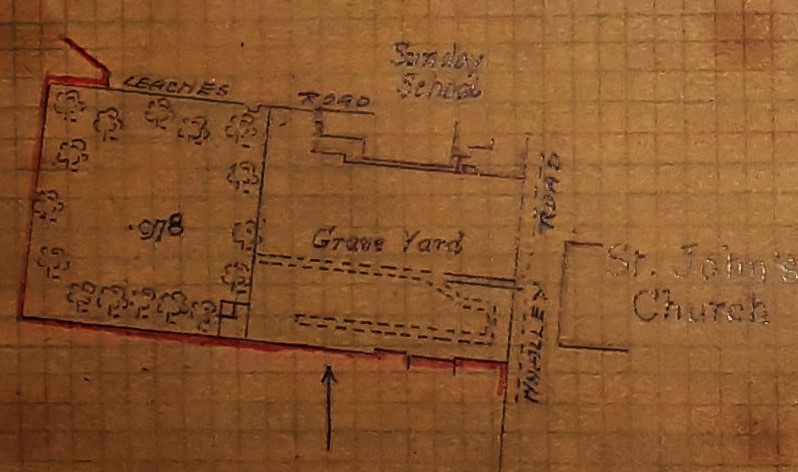 Sunday
School
LEACHES ROAD
.978
Grave Yard
WHALLEY ROAD
St. John's
Church